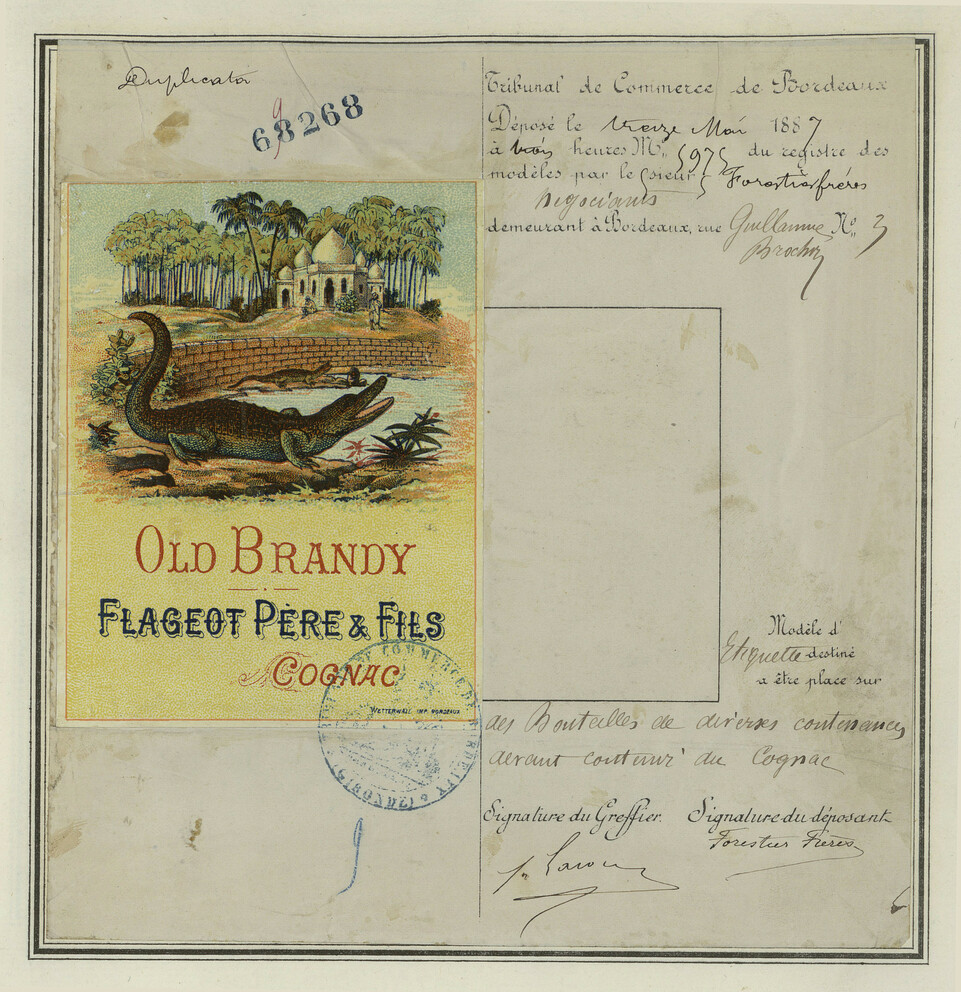 Duplicata
68268
9
Tribunal de Commerce de Bordeaux
Déposé le treize Mai 1887
à trois heures Mn. 5975 du registre des
modèles par le Sieurs Forestier frères
Négociants
demeurant à Bordeaux, rue Guillaume No. 3
Brochon
OLD BRANDY
FLAGEOT PÈRE & FILS
COGNAC
WETTERWALD IMP. BORDEAUX
TRIBUNAL DE COMMERCE DE BORDEAUX
Modèle d'
Etiquette destiné
a être place sur
des Bouteilles de diverses contenances
devant contenir du Cognac
Signature du Greffier. Signature du déposant
Forestier Frères